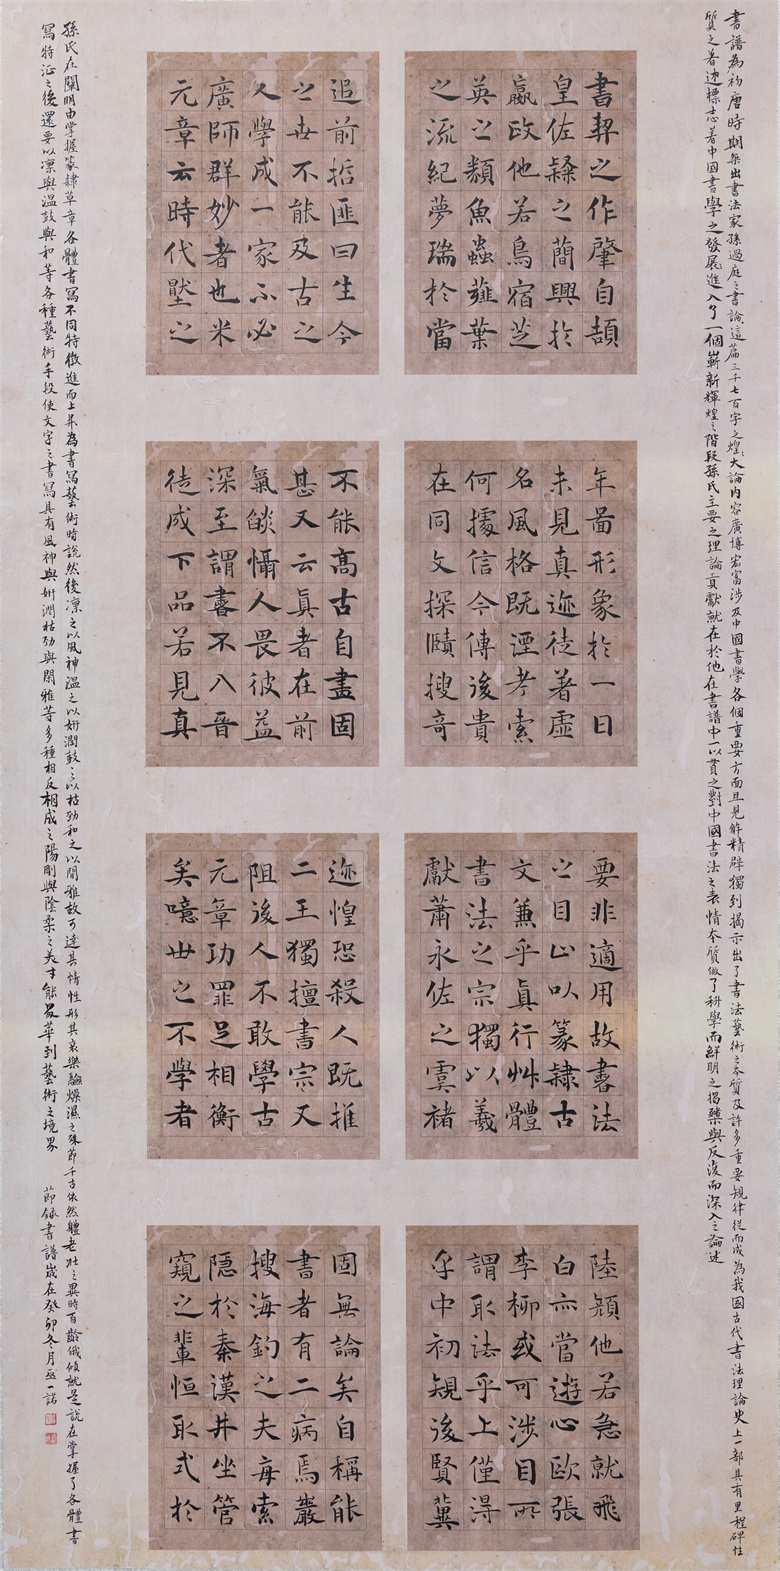 書譜為初唐時期傑出書法家孫過庭之書論這篇三千七百字之煌煌大論內容廣博宏富涉及中國書學各個重要方面且見解精辟獨到揭示出了書法藝術之本質及許多重要規律從而成為我國古代書法理論史上一部具有里程碑性
質之著述標志着中國書學之發展進入了一個嶄新輝煌之階段孫氏主要之理論貢獻就在於他在書譜中一以貫之對中國書法之表情本質做了科學而鮮明之揭櫫與反復而深入之論述
書契之作肇自頡
皇佐隸之蘭興於
嬴政他若鳥宿芝
英之類魚蟲薤葉
之流紀夢瑞於當
年啚形象於一日
未見真迹徒著虛
名風格既湮考索
何據信今傳後貴
在同文探賾搜奇
要非適用故書法
之目止以篆隸古
文兼乎真行艸體
書法之宗獨以羲
獻蕭永佐之虞褚
陸顏他若急就飛
白亦當遊心歐張
李柳或可涉目所
謂取法乎上僅得
乎中初規後賢冀
追前哲匪曰生今
之世不能及古之
人學成一家不必
廣師群妙者也米
元章云時代壓之
不能高古自畫固
甚又云真者在前
氣燄懾人畏彼益
深至謂書不入晉
徒成下品若見真
迹惶恐殺人既推
二王獨擅書宗又
阻後人不敢學古
元章功罪足相衡
矣噫世之不學者
固無論矣自稱能
書者有二病焉巖
搜海釣之夫每索
隱於秦漢井坐管
窺之輩恒取式於
孫氏在闡明由掌握篆隸草章各體書寫不同特徵進而上升為書寫藝術時說然後凜之以風神溫之以妍潤鼓之以枯勁和之以閑雅故可達其情性形其哀樂驗燥濕之殊節千古依然體老壯之異時百齡俄頃就是說在掌握了各體書
寫特征之後還要以凜與溫鼓與和等各種藝術手段使文字之書寫具有風神與妍潤枯勁與閑雅等多種相反相成之陽剛與陰柔之美才能昇華到藝術之境界 節錄書譜歲在癸卯冬月 一諾